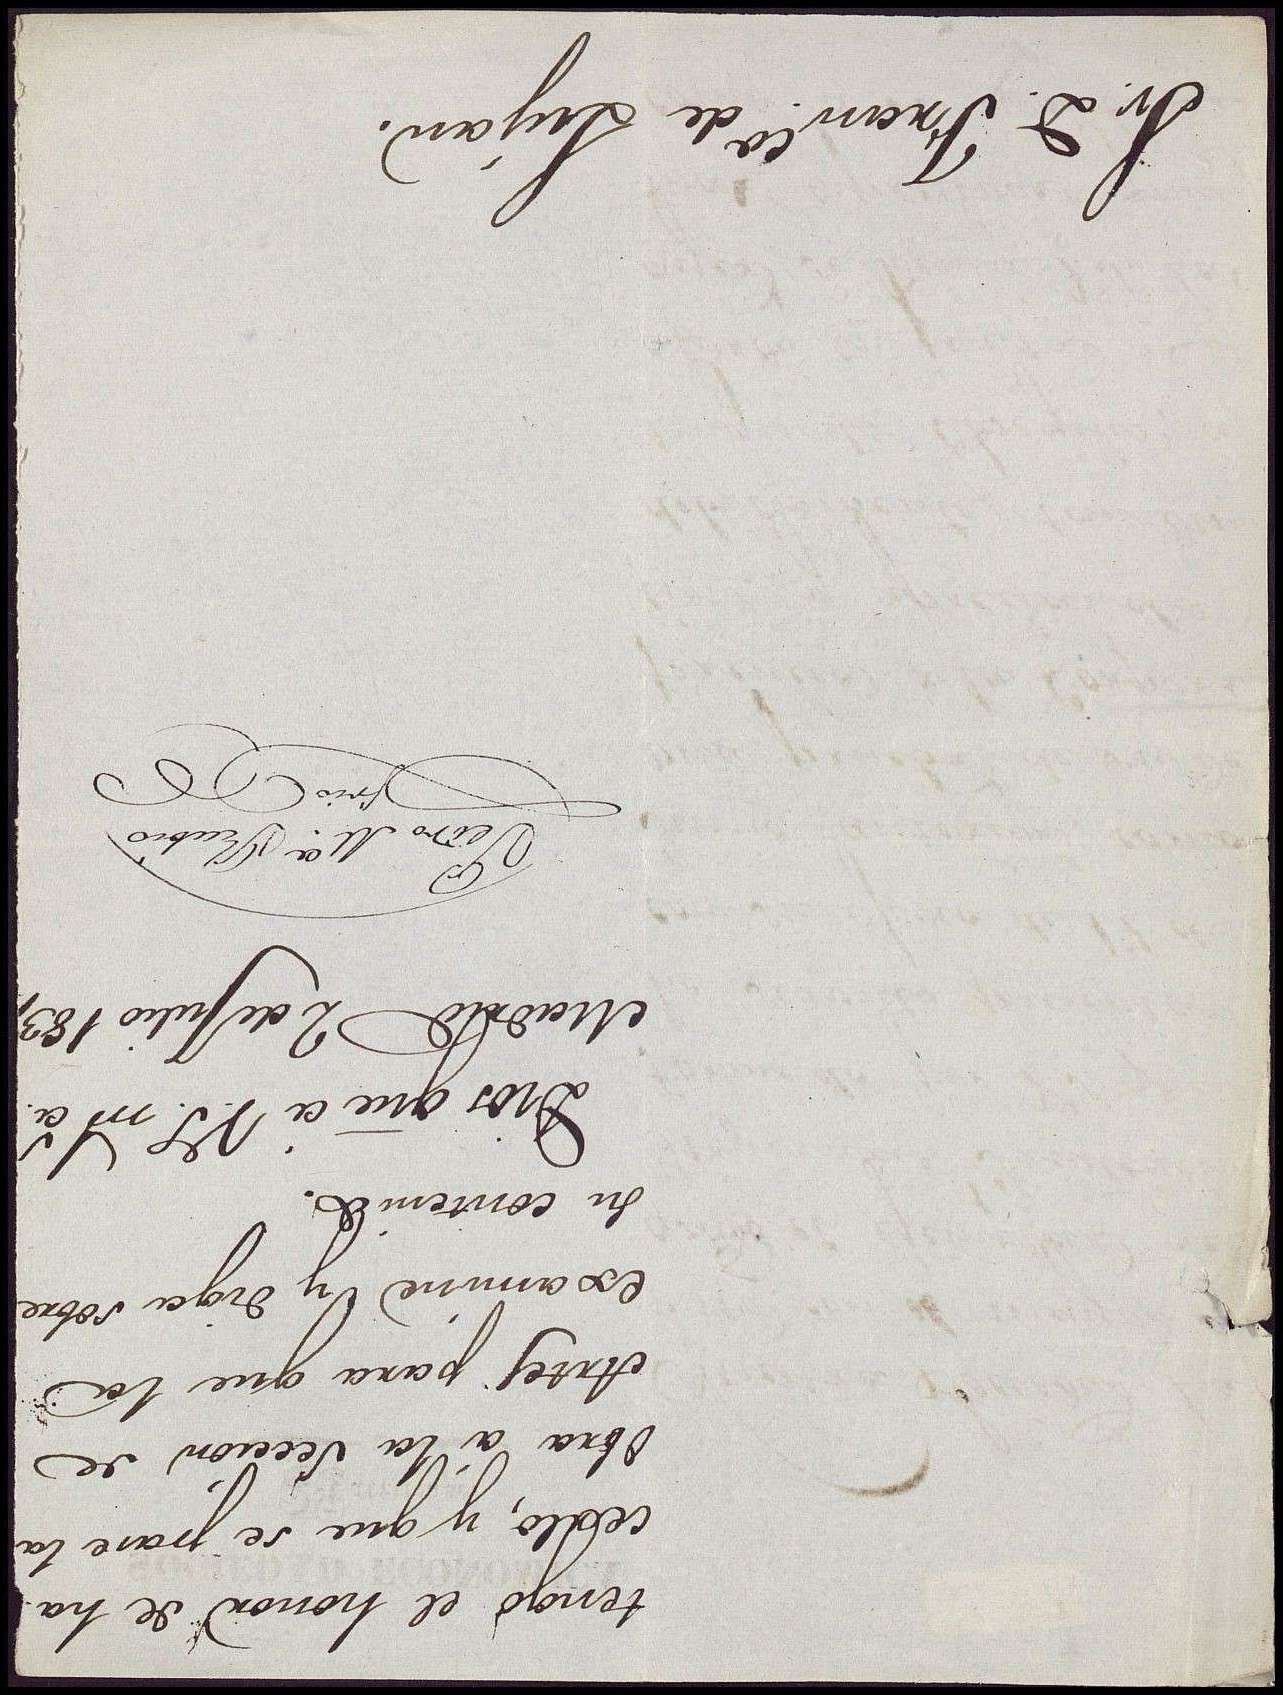 tengo el honor de ha
cerlo, y que se pase la
obra a la Seccion de
Artes para que la
examine y diga sobre
su contenido.
Dios gue a V.S. ms as.
Madrid 2 de Julio 183
Pedro Ma Rubio
Srio
Sr. D. Franco de Luján.